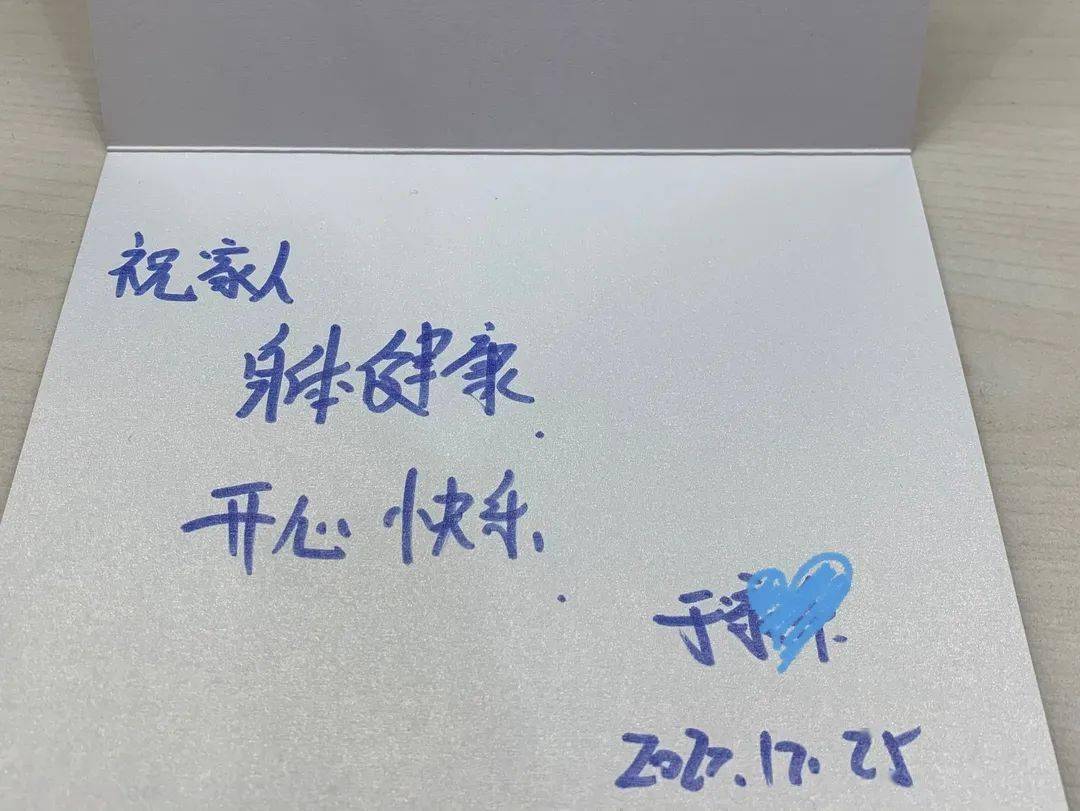 祝家人
身体健康.
开心快乐.
于
12.25